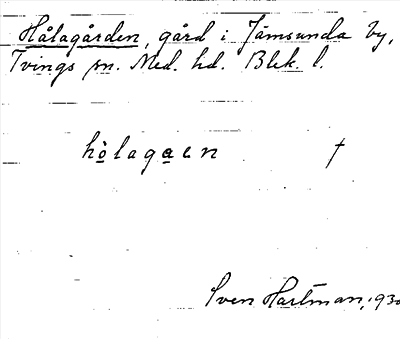 Hålagården, gård i Jämsunda by,
Tvings sn. Med. hd. Blek. l.
hòlagaen †
Sven Hartman, 930